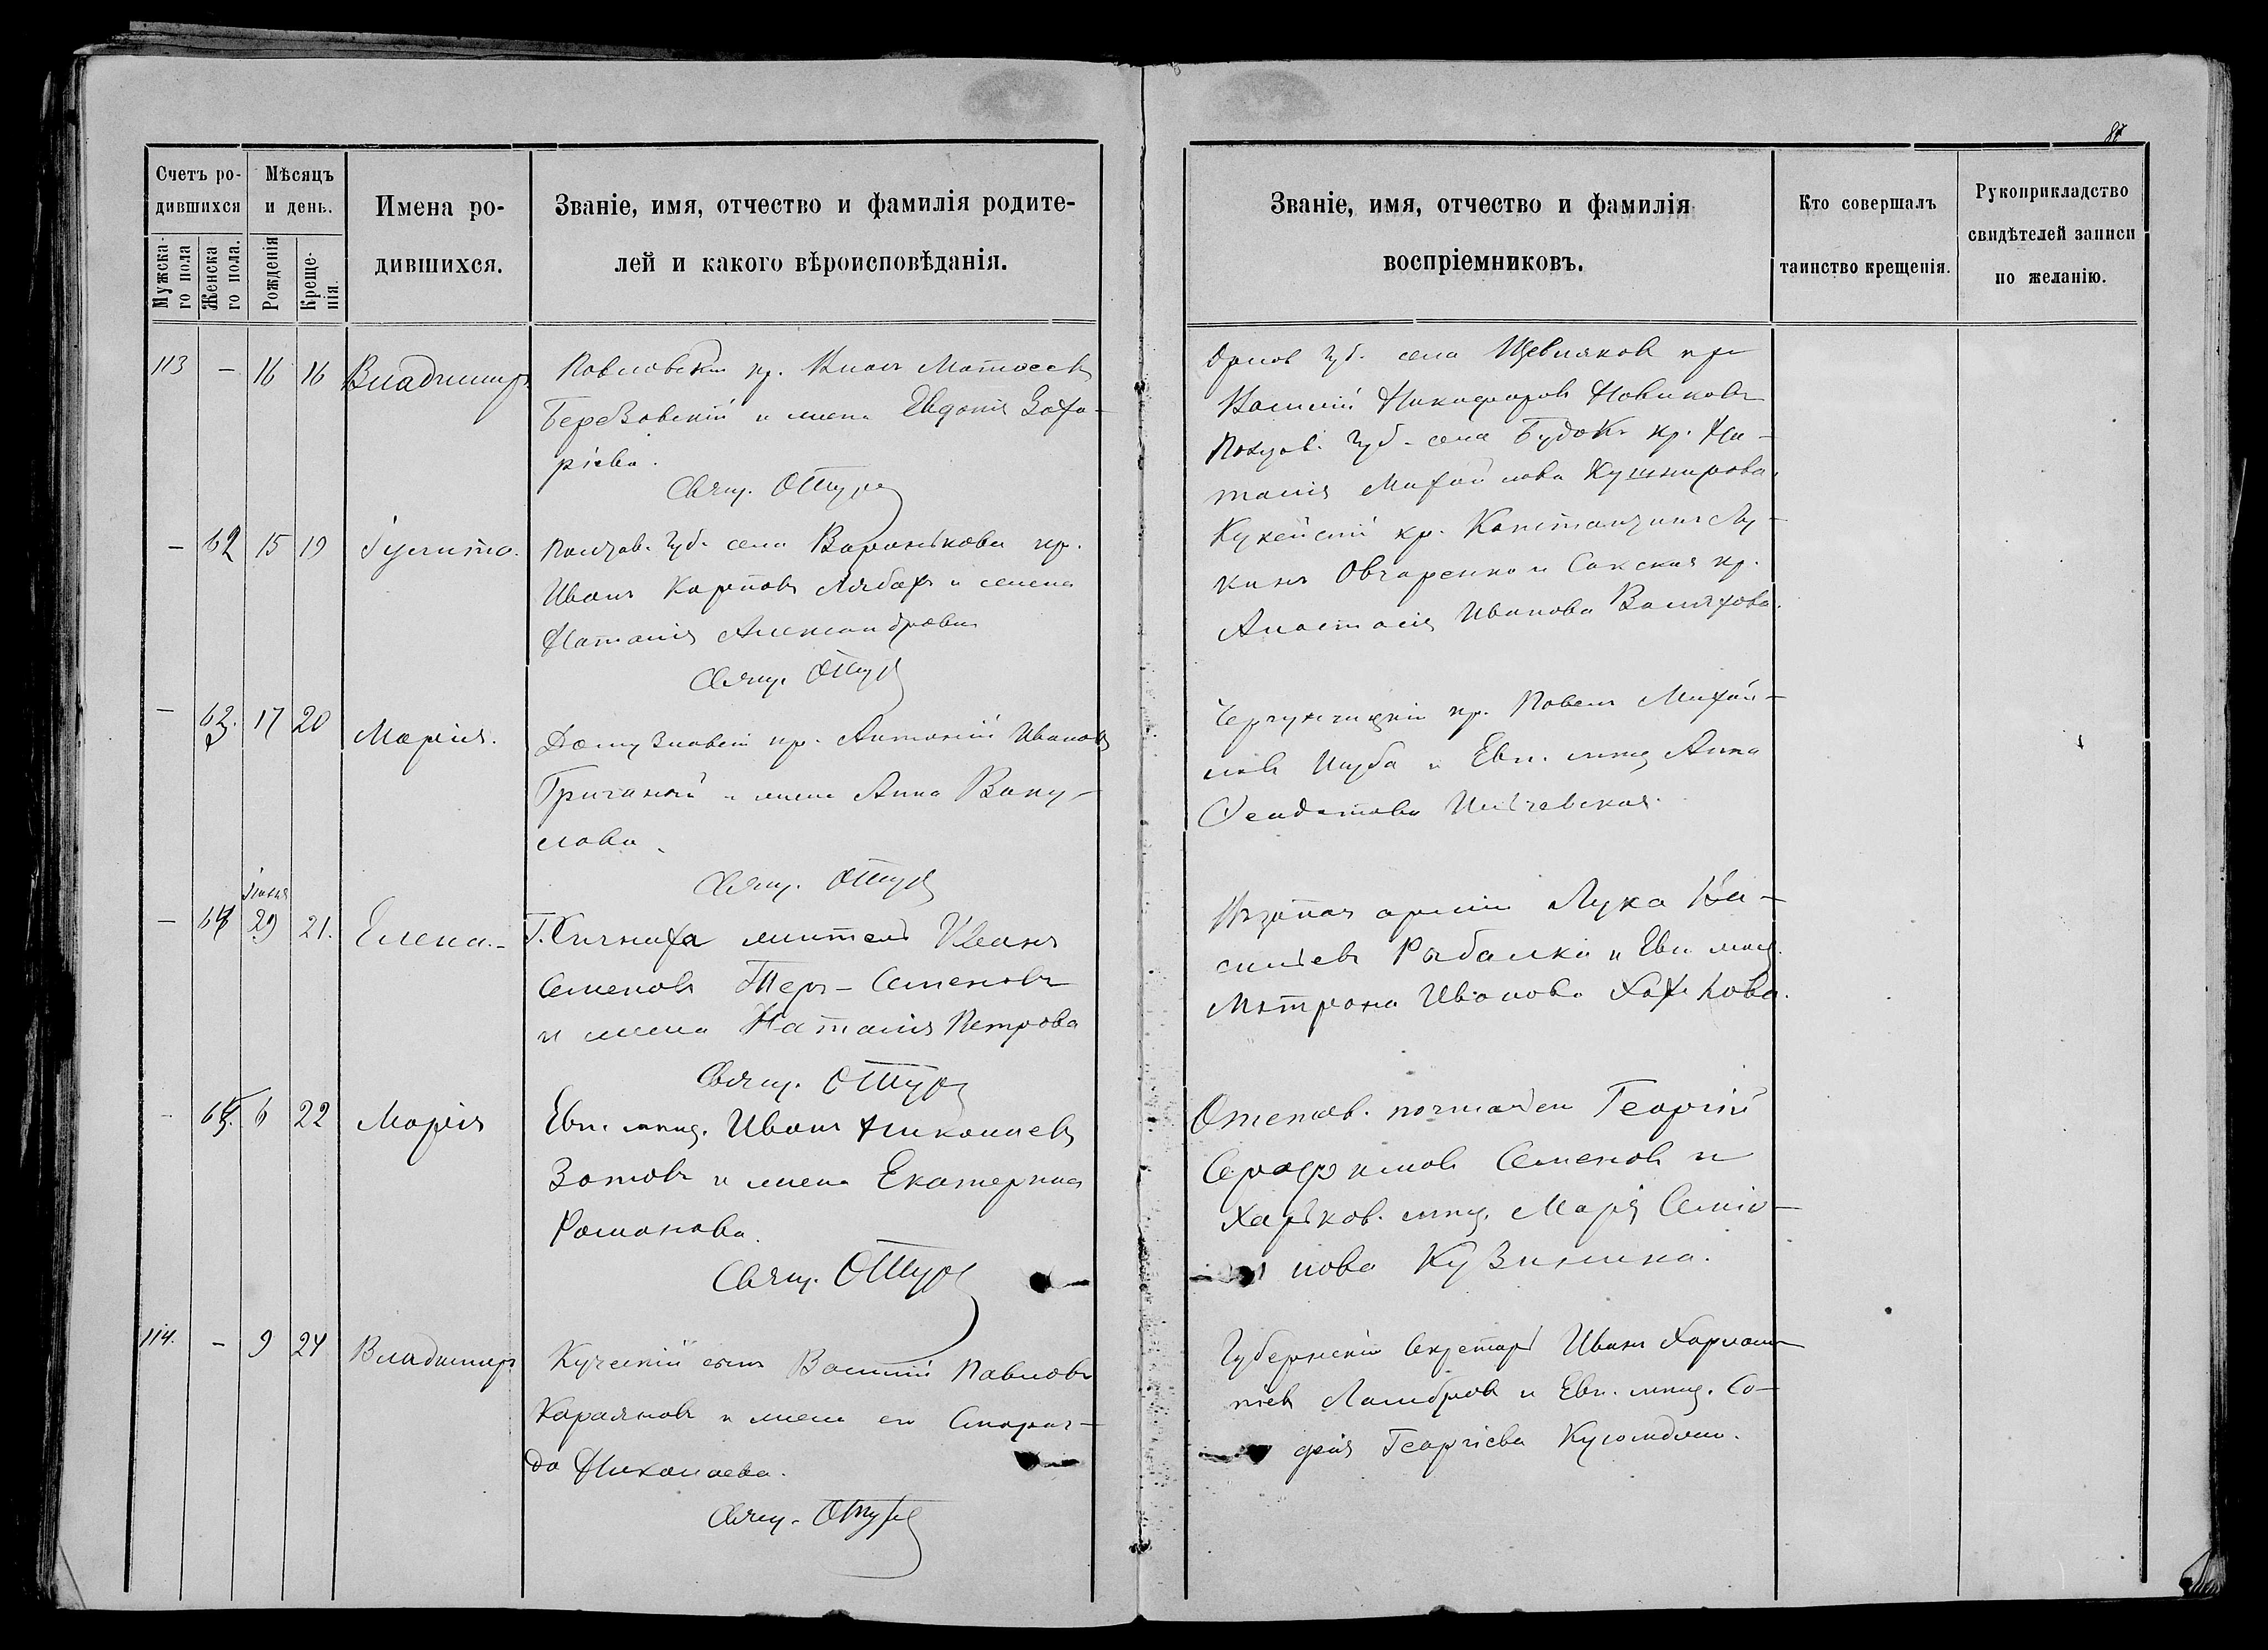 87
Счетъ ро-
дившихся
Мужска-
го пола
Женска
го пола.
Мѣсяцъ
и день.
Рожденія
Креще-
нія.
Имена ро-
дившихся.
Званіе, имя, отчество и фамилія родите-
лей и какого вѣроисповѣданія.
Званіе, имя, отчество и фамилія
воспріемниковъ.
Кто совершалъ
таинство крещенія.
Рукоприкладство
свидѣтелей записи
по желанію.
113 – 16 16 Владимиръ
Павловскій кр. Матвеевъ
Березовскій и жена Евдокія Заха-
ріева.
Свящ.
губ. села кр.
Василій Никифоровъ Новиковъ
Полтав. губ. села Будокъ кр. На-
талія Михайлова Кушнирова.
– 62 15 19 Іулита.
Полтав. губ. села Воронькова кр.
Иванъ Карповъ и жена
Наталія Александрова
Свящ.
кр. Константинъ Лу-
кинъ Овчаренко и Сакская кр.
Анастасія Иванова
– 63. 17 20 Марія.
кр. Антоній Ивановъ
и жена Анна Ваку-
лова.
Свящ.
кр. Павелъ Михай-
ловъ Шуба и Евп. мѣщ. Анна
Феодотова
Іюня
– 64 29 21. Елена.
Г. житель Иванъ
Семеновъ Теръ-Семеновъ
и жена Наталія Петрова
Свящ.
арміи Лука Ва-
сильевъ Рыбалка и Евп. мѣщ.
Матрона Иванова
– 65. 6 22 Марія
Евп. мѣщ. Иванъ Николаевъ
Зотовъ и жена Екатерина
Романова.
Свящ.
Георгій
Серафимовъ Семеновъ и
Харьков. мѣщ. Марія Семіо-
нова Кузинина.
114. – 9 24 Владимиръ
Купеческій сынъ Василій Павловъ
Караяновъ и жена его Смараг-
да Николаева.
Свящ.
Губернскій Секретарь Иванъ Харлам-
піев Ламбровъ и Евп. мѣщ. Со-
фія Георгіева